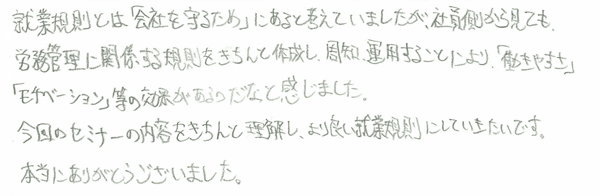 就業規則とは「会社を守るため」にあると考えていましたが、社員側から見ても、
労務管理に関係する規則をきちんと作成し、周知、運用することにより、「働きやすさ」
「モチベーション」等の効果があるのだなと感じました。
今回のセミナーの内容をきちんと理解し、より良い就業規則にしていきたいです。
本当にありがとうございました。